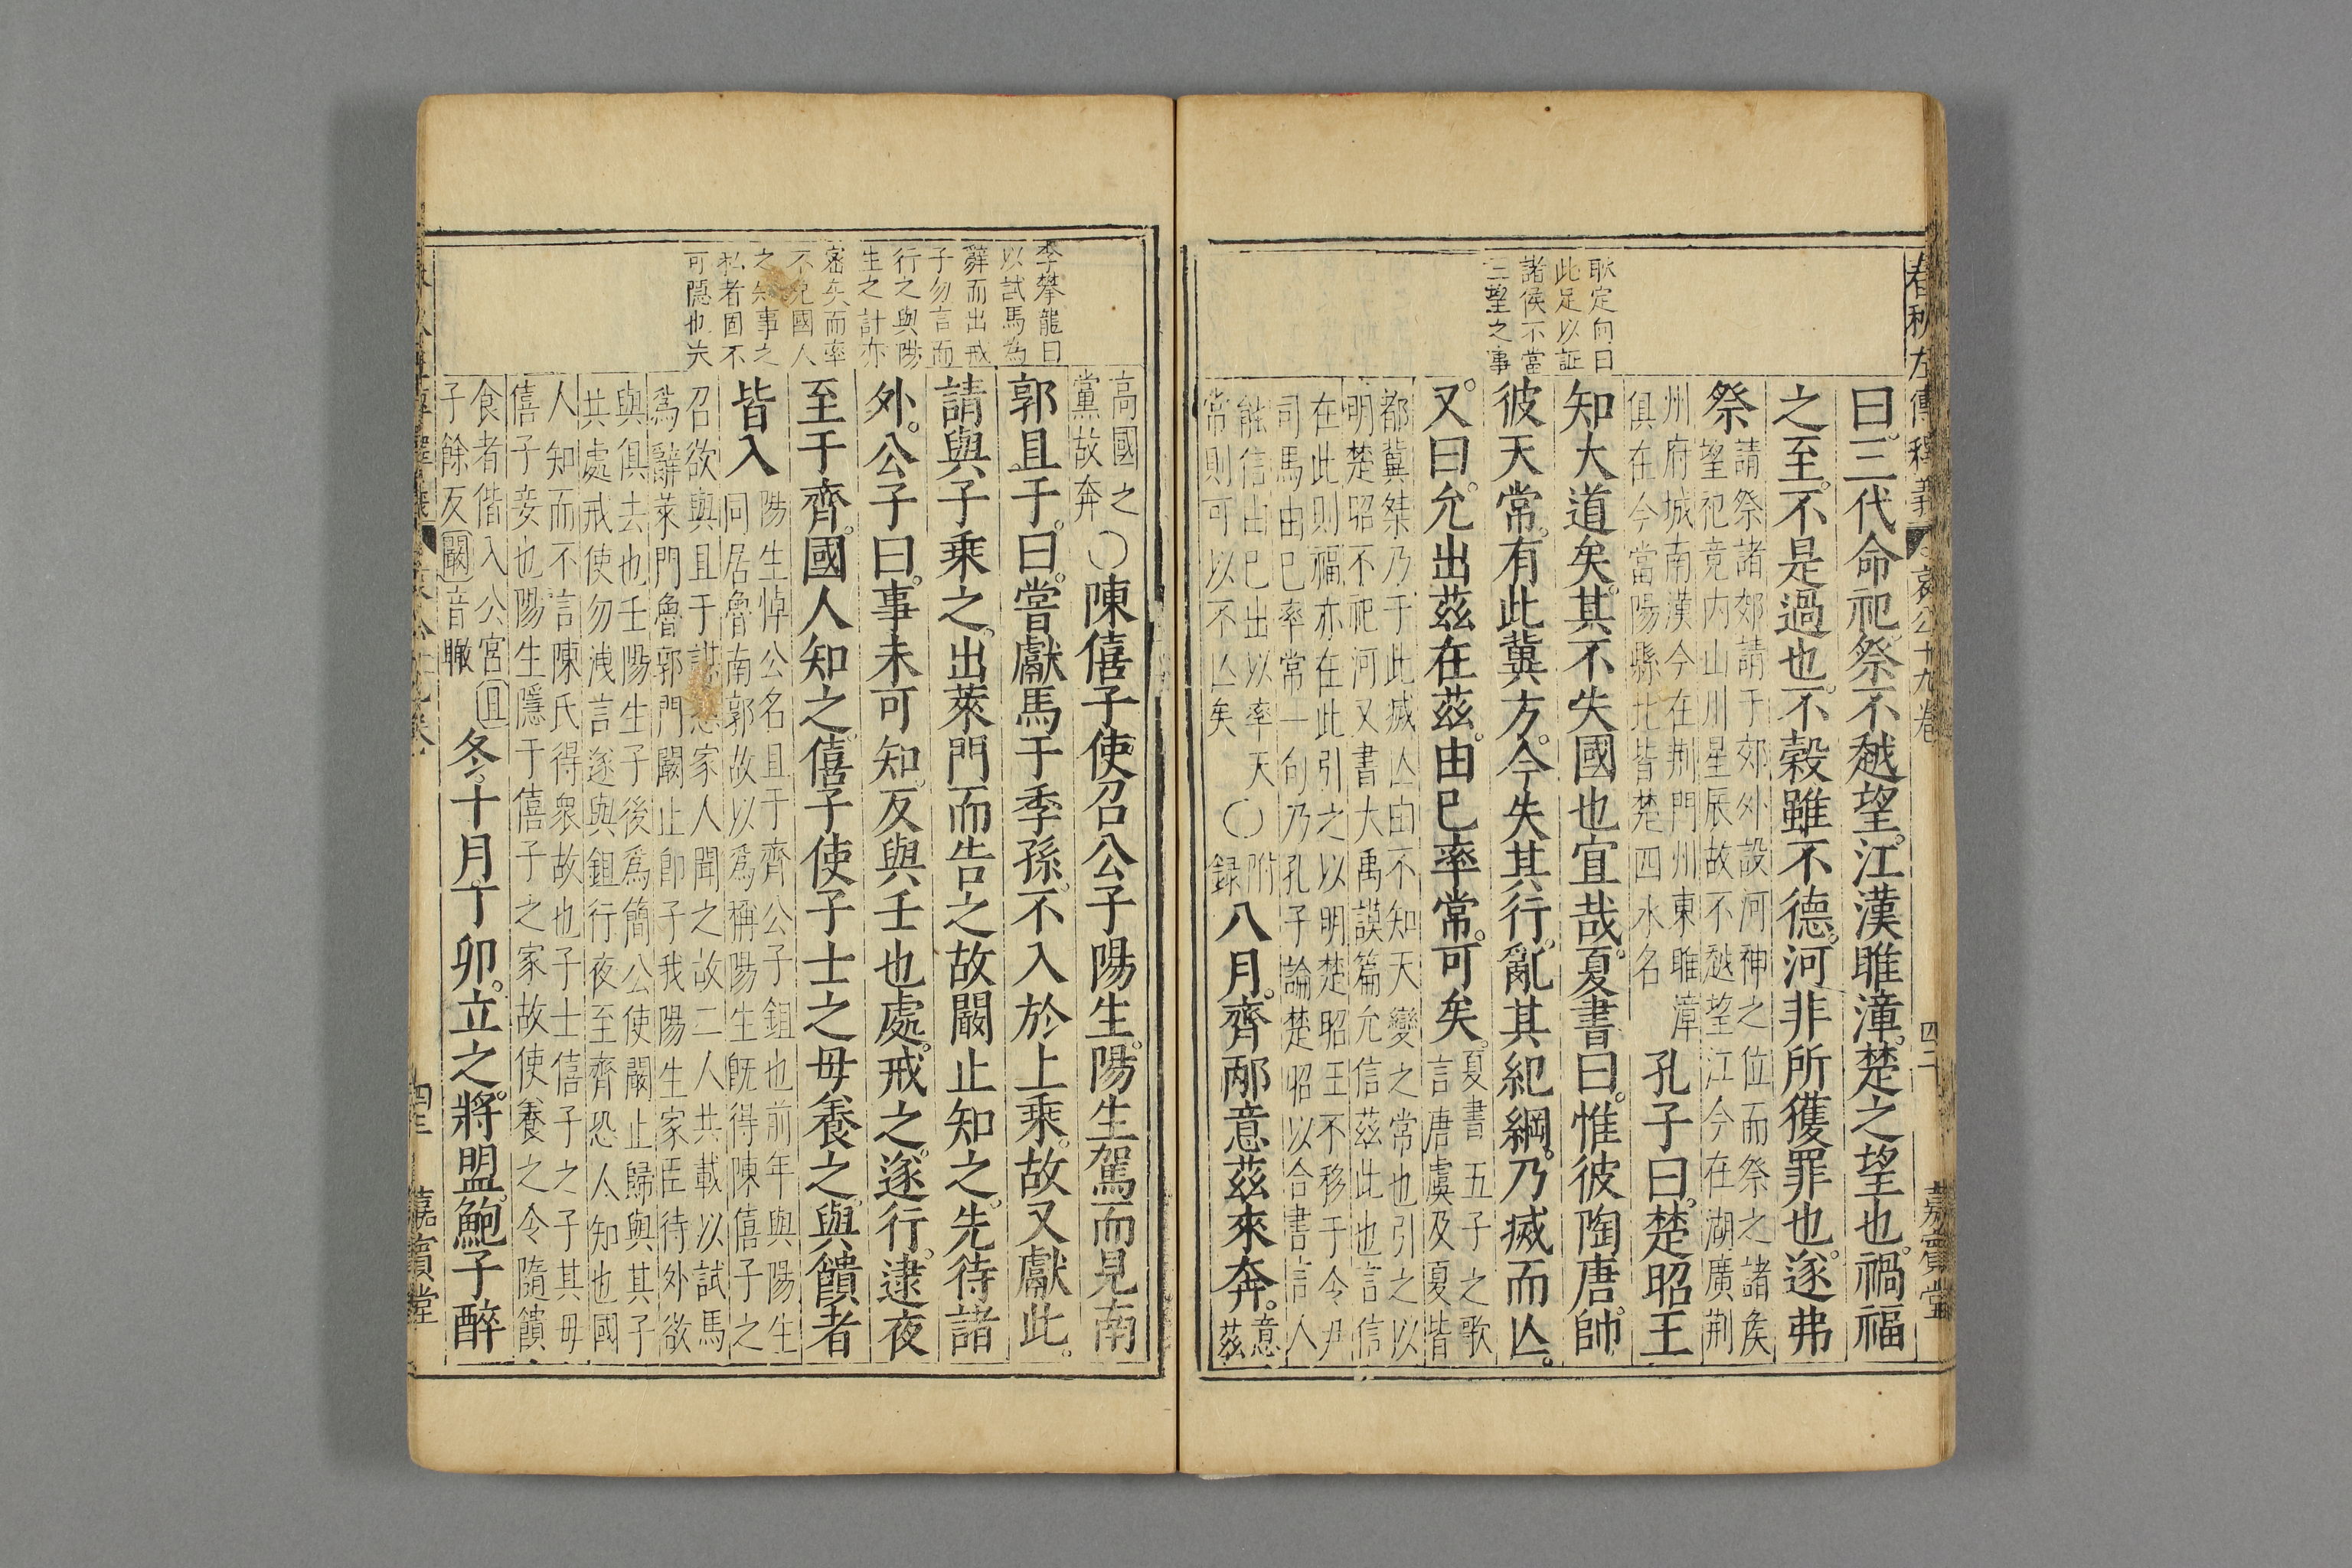 春秋左傳釋義 哀公十九卷 四十 嘉賓堂
耿定向曰
此足以証
諸侯不當
三望之事
曰。三代命祀。祭不越望。江漢睢漳。楚之望也。禍福
之至。不是過也。不穀雖不德。河非所獲罪也。遂弗
祭
請祭諸郊請于郊外設河神之位而祭之諸矦
望祀竟内山川星辰故不越望江今在湖廣荆
州府城南漢今在荆門州東睢漳
俱在今當陽縣北皆楚四水名
孔子曰。楚昭王
知大道矣。其不失國也宜哉。夏書曰。惟彼陶唐。帥
彼天常。有此冀方。今失其行。亂其紀綱。乃烕而亾。
又曰。允出茲在茲。由己率常。可矣。
夏書五子之歌
言唐虞及夏皆
都冀桀乃于此烕亾由不知天變之常也引之以
明楚昭不祀河又書大禹謨篇允信茲此也言信
在此則福亦在此引之以明楚昭王不移于令尹
司馬由己率常一句乃孔子論楚昭以合書言人
能信由己出以率天
常則可以不亾矣
〇
附
録
八月。齊邴意茲來奔。
意
茲
高國之
黨故奔
〇陳僖子使召公子陽生。陽生駕而見南
郭且于。曰。嘗獻馬于季孫。不入於上乘。故又獻此。
請與子乘之。出萊門而告之故。闞止知之。先待諸
外。公子曰。事未可知。反與壬也處。戒之。遂行。逮夜
至于齊。國人知之。僖子使子士之毋養之。與饋者
皆入
李攀龍曰
以試馬為
辭而出戒
子勿言而
行之與陽
生之計亦
密矣而率
不免國人
之知事之
私者固不
可隱也夫
陽生悼公名且于齊公子鉏也前年與陽生
同居魯南郭故以爲稱陽生旣得陳僖子之
召欲與且于謀恐家人聞之故二人共載以試馬
爲辭萊門魯郭門闞止卽子我陽生家臣待外欲
與俱去也壬陽生子後爲簡公使闞止歸與其子
共處戒使勿洩言遂與鉏行夜至齊恐人知也國
人知而不言陳氏得衆故也子士僖子之子其毋
僖子妾也陽生隱于僖子之家故使養之令隨饋
食者偕入公宮 且
子餘反 闞 音瞰
冬。十月丁卯。立之。將盟。鮑子醉
四十一 嘉賓堂